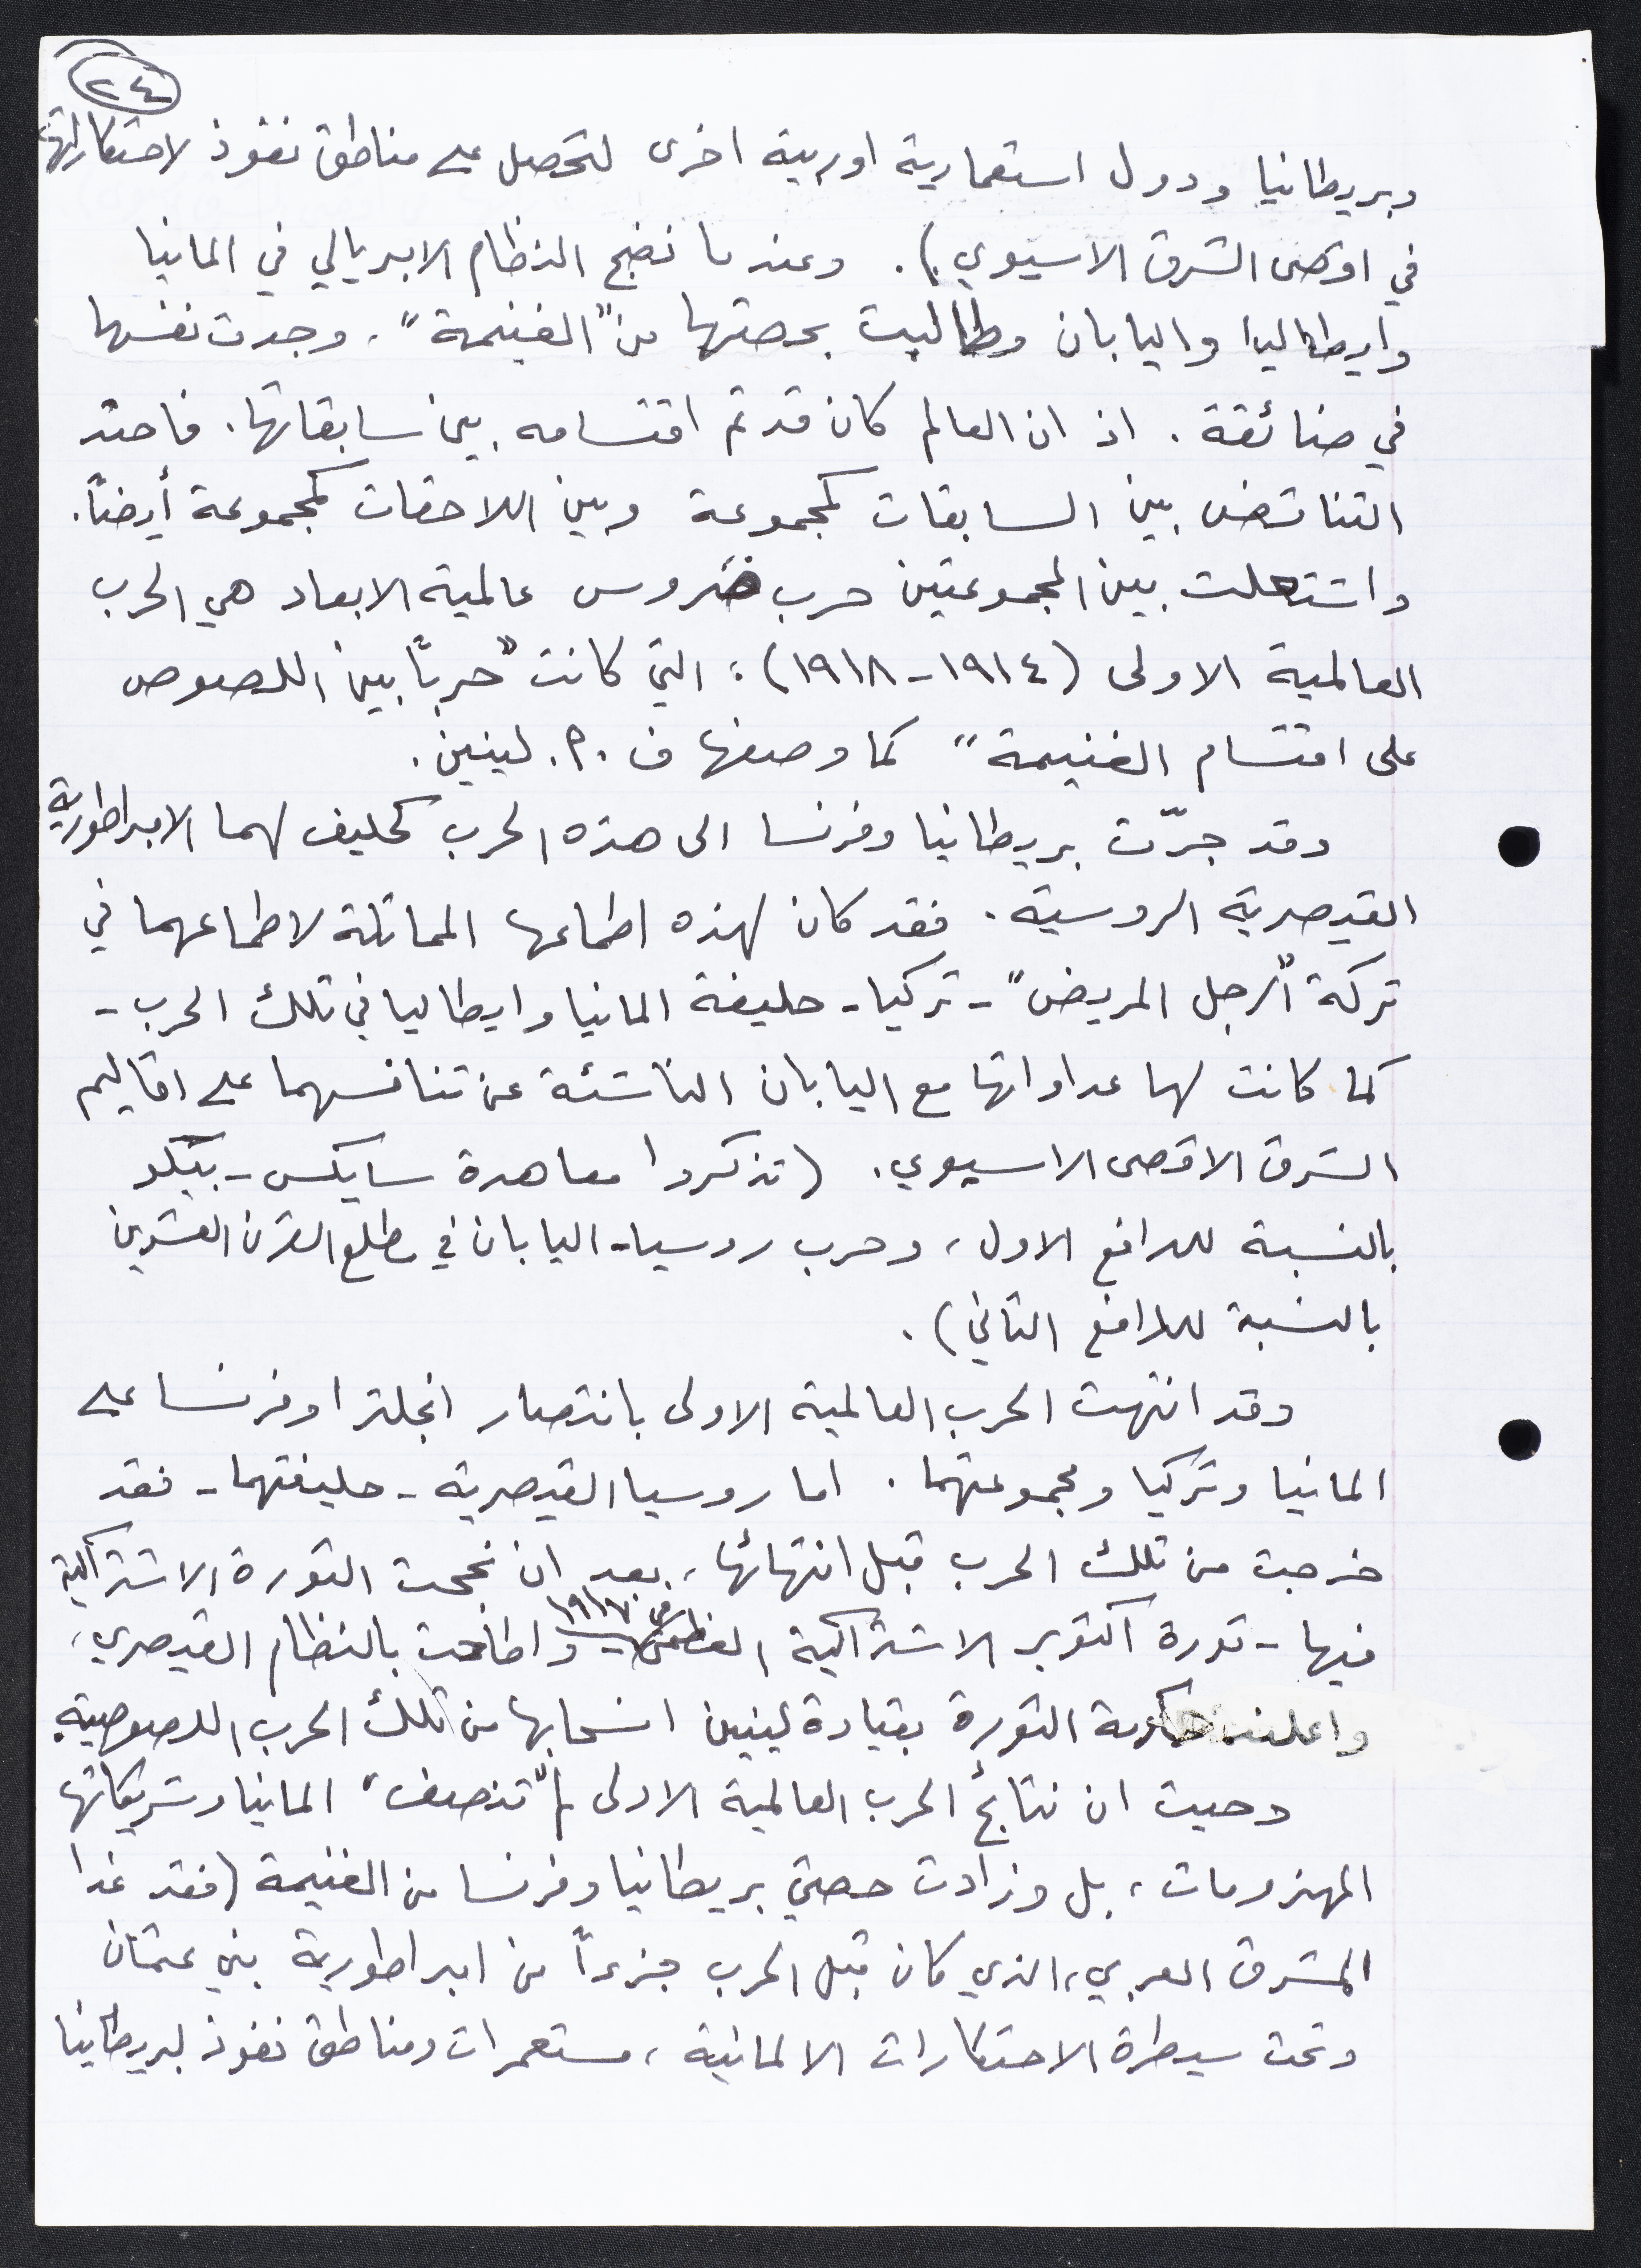 ٢٤
وبريطانيا ودول استعمارية اوربية اخرى لتحصل على مناطق نفوذ لاحتكاراتها
في اقصى الشرق الاسيوي). وعندما نضج النظام الامبريالي في المانيا
وايطاليا واليابان وطالبت بحصتها من "الغنيمة"، وجدت نفسها
في ضائقة. اذ ان العالم كان قد تم اقتسامه بين سابقاتها. فاحتد
التناقض بين السابقات كمجموعة وبين اللاحقات كمجموعة أيضاً.
واشتعلت بين المجموعتين حرب ضروس عالمية الابعاد هي الحرب
العالمية الاولى (١٩١٤-١٩١٨)؛ التي كانت "حرباً بين اللصوص
على اقتسام الغنيمة" كما وصفها ف. م. لينين.
وقد جرّت بريطانيا وفرنسا الى هذه الحرب كحليف لهما الامبراطورية
القيصرية الروسية. فقد كان لهذه اطماعها المماثلة لاطماعهما في
تركة "الرجل المريض" - تركيا - حليفة المانيا وايطاليا في تلك الحرب -
كما كانت لها عداواتها مع اليابان الناشئة عن تنافسهما على اقاليم
الشرق الاقصى الاسيوي. (تذكروا معاهدة سايكس-بيكو
بالنسبة للدافع الاول، وحرب روسيا-اليابان في مطلع القرن العشرين
بالنسبة للدافع الثاني).
وقد انتهت الحرب العالمية الاولى بانتصار انجلترا وفرنسا على
المانيا وتركيا ومجموعتهما. اما روسيا القيصرية - حليفتهما - فقد
خرجت من تلك الحرب قبل انتهائها، بعد ان نجحت الثورة الاشتراكية
فيها - ثورة اكتوبر الاشتراكية العظمى في ١٩١٧ - واطاحت بالنظام القيصري،
واعلنت حكومة الثورة بقيادة لينين انسحابها من تلك الحرب اللصوصية.
وحيث ان نتائج الحرب العالمية الاولى لم "تنصف" المانيا وشريكاتها
المهزومات، بل وزادت حصتي بريطانيا وفرنسا من الغنيمة (فقد غدا
المشرق العربي، الذي كان قبل الحرب جزءاً من امبراطورية بني عثمان
وتحت سيطرة الاحتكارات الالمانية، مستعمرات ومناطق نفوذ لبريطانيا